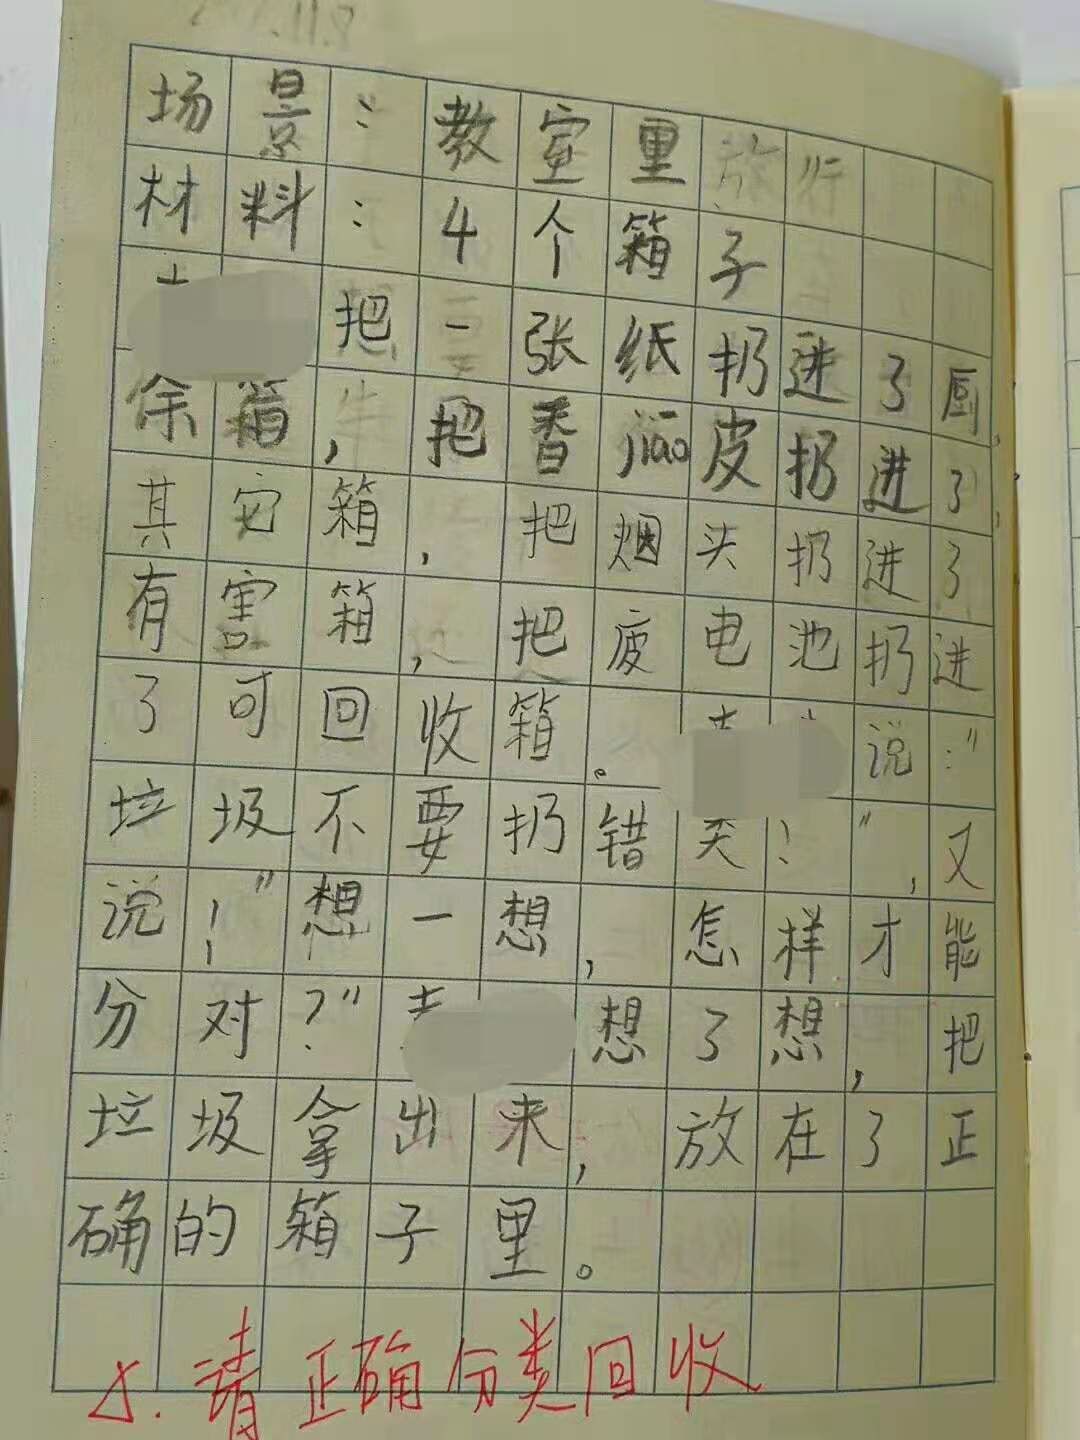 11.8
场景:教室里
材料:4个箱子
把一张纸扔进了厨
余箱,把香jiāo皮扔进了
其它箱,把烟头扔进了
有害箱,把疲电池扔进
了可回收箱。说:"
垃圾不要扔错关!",又
说:"想一想,怎样才能
分对?"想了想,把
垃圾拿出来,放在了正
确的箱子里。
请正确分类回收